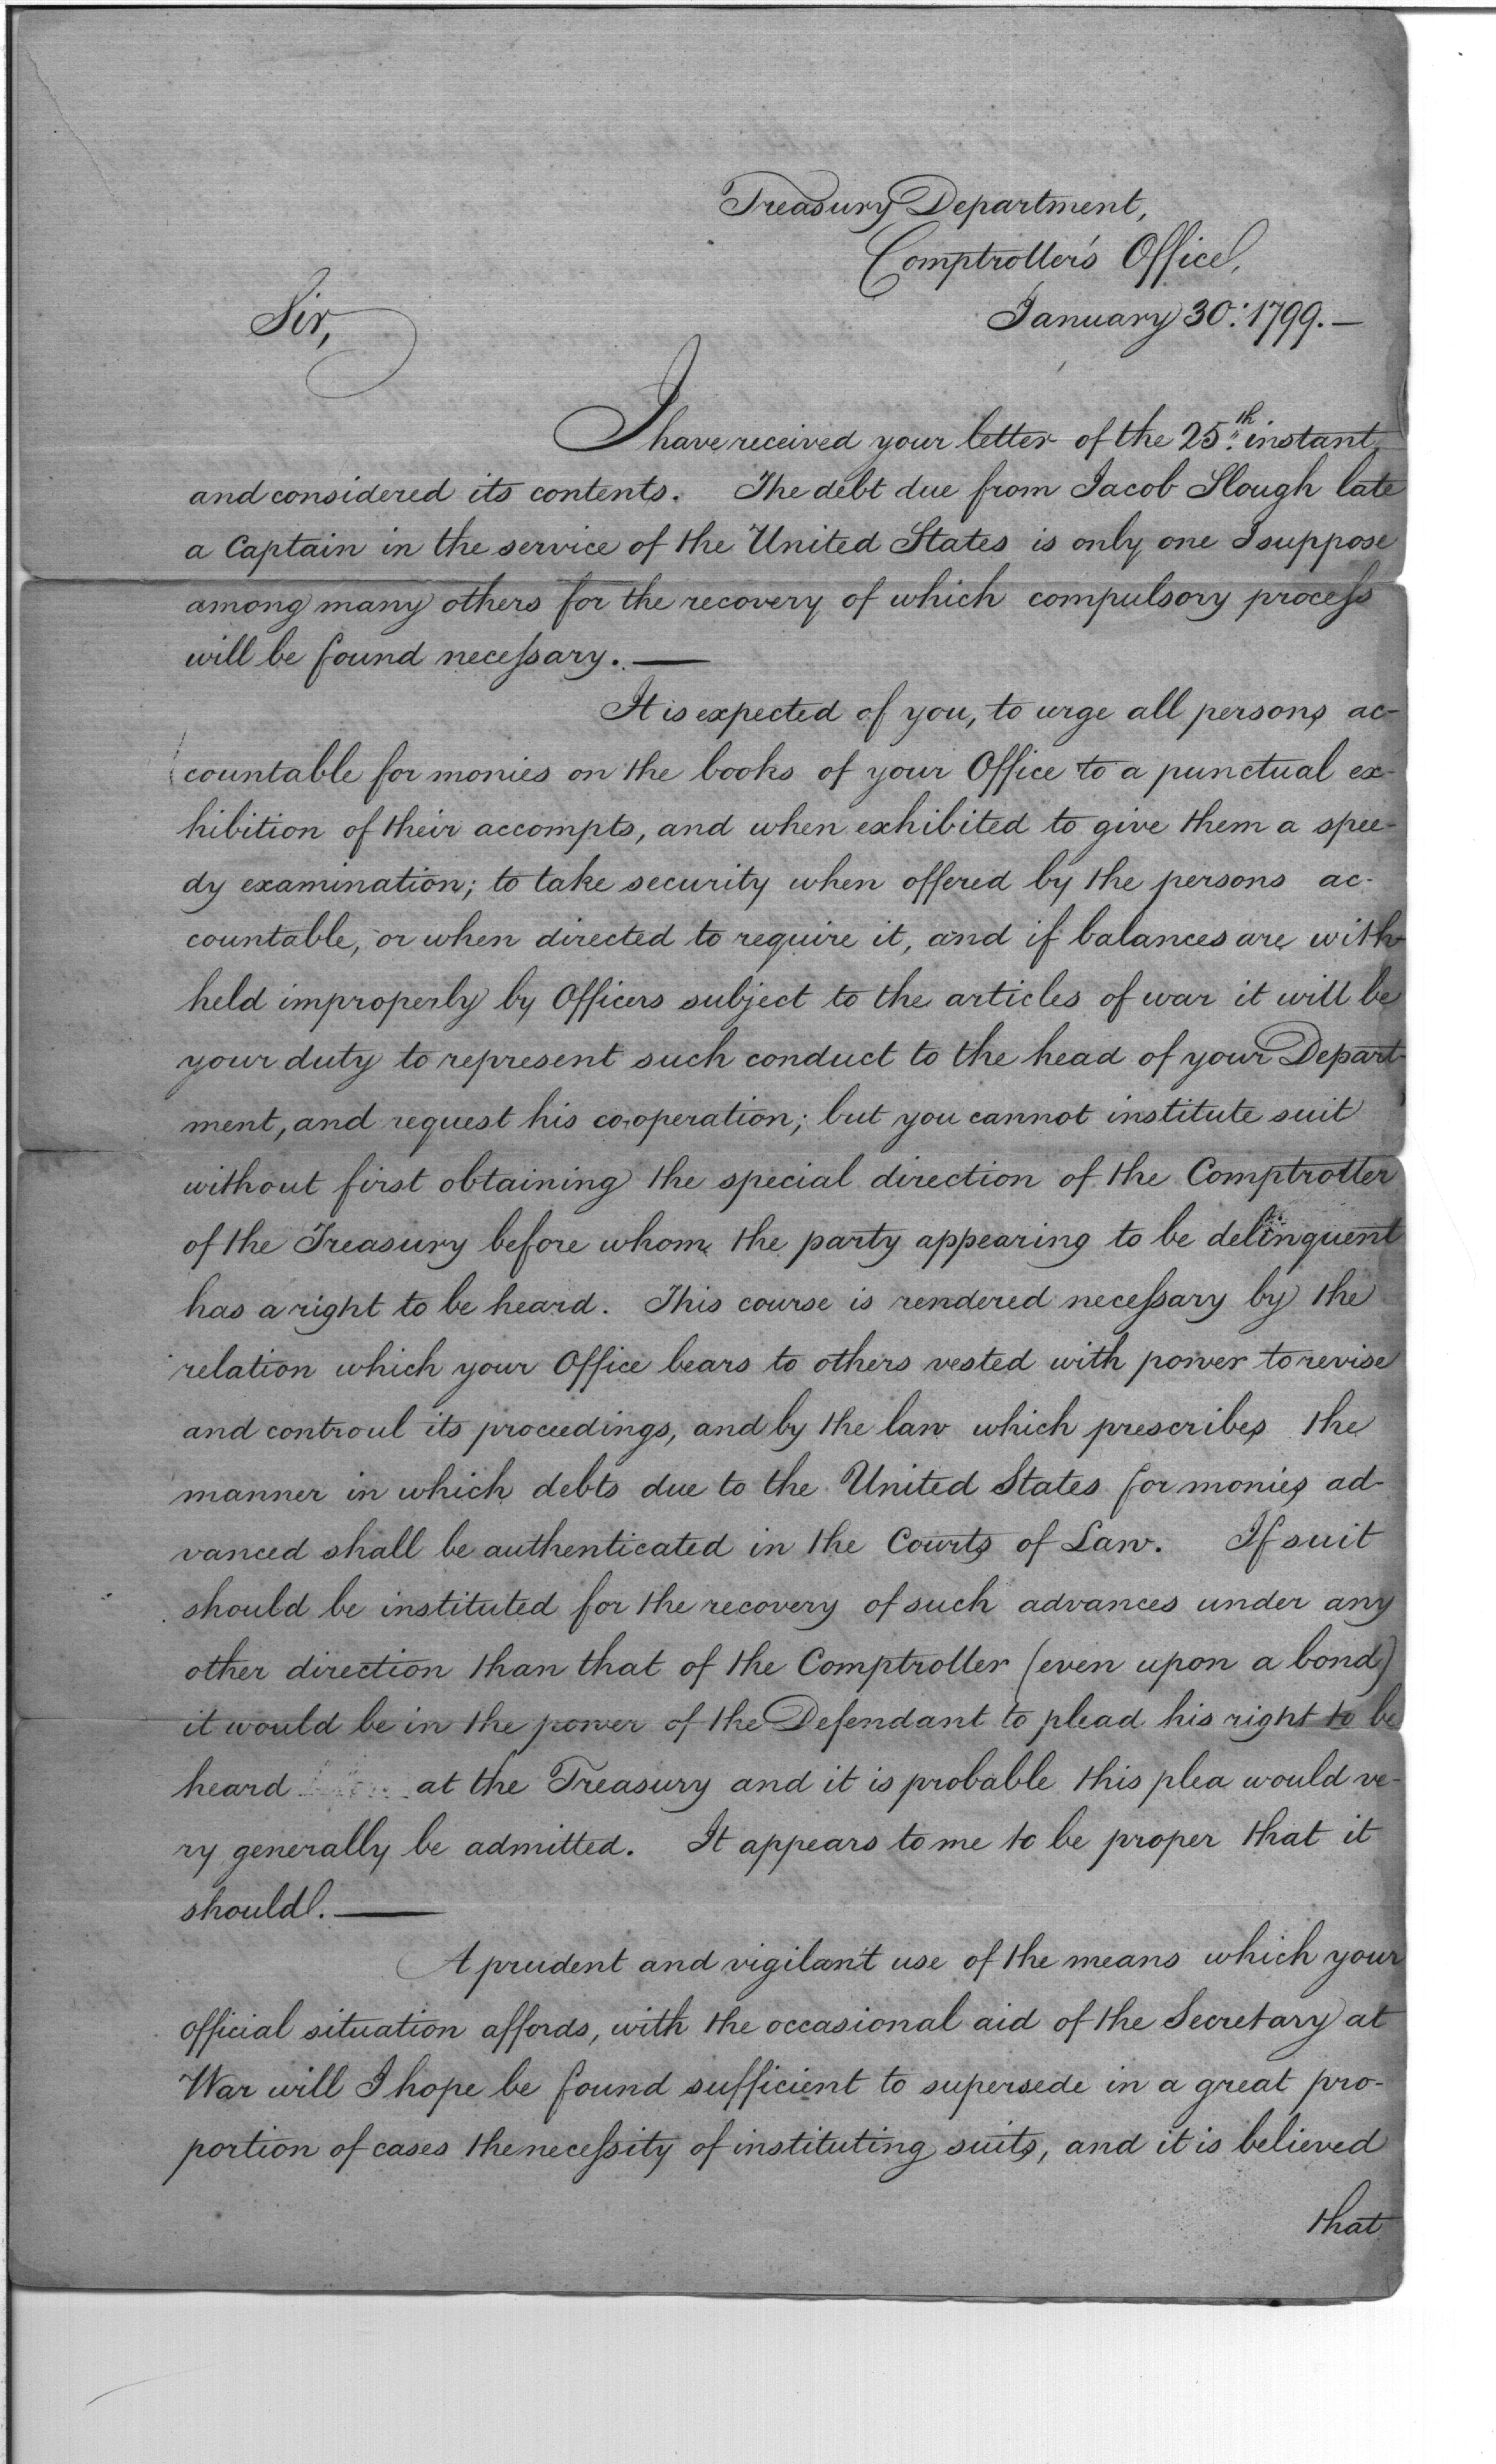 Treasury Department,
Comptroller's Office,
January 30: 1799.—
Sir,
I have received your letter of the 25th instant,
and considered its contents. The debt due from Jacob Slough late
a Captain in the service of the United States is only one I suppose
among many others for the recovery of which compulsory process
will be found necessary.—
It is expected of you, to urge all persons ac-
countable for monies on the books of your Office to a punctual ex-
hibition of their accompts, and when exhibited to give them a spee-
dy examination; to take security when offered by the persons ac-
countable, or when directed to require it, and if balances are with-
held improperly by Officers subject to the articles of war it will be
your duty to represent such conduct to the head of your Depart-
ment, and request his co-operation; but you cannot institute suit
without first obtaining the special direction of the Comptroller
of the Treasury before whom the party appearing to be delinquent
has a right to be heard. This course is rendered necessary by the
relation which your Office bears to others vested with power to revise
and controul its proceedings, and by the law which prescribes the
manner in which debts due to the United States for monies ad-
vanced shall be authenticated in the Courts of Law. If suit
should be instituted for the recovery of such advances under any
other direction than that of the Comptroller (even upon a bond)
it would be in the power of the Defendant to plead his right to be
heard at the Treasury and it is probable this plea would ve-
ry generally be admitted. It appears to me to be proper that it
should.—
A prudent and vigilant use of the means which your
official situation affords, with the occasional aid of the Secretary at
War will I hope be found sufficient to supersede in a great pro-
portion of cases the necessity of instituting suits, and it is believed
that